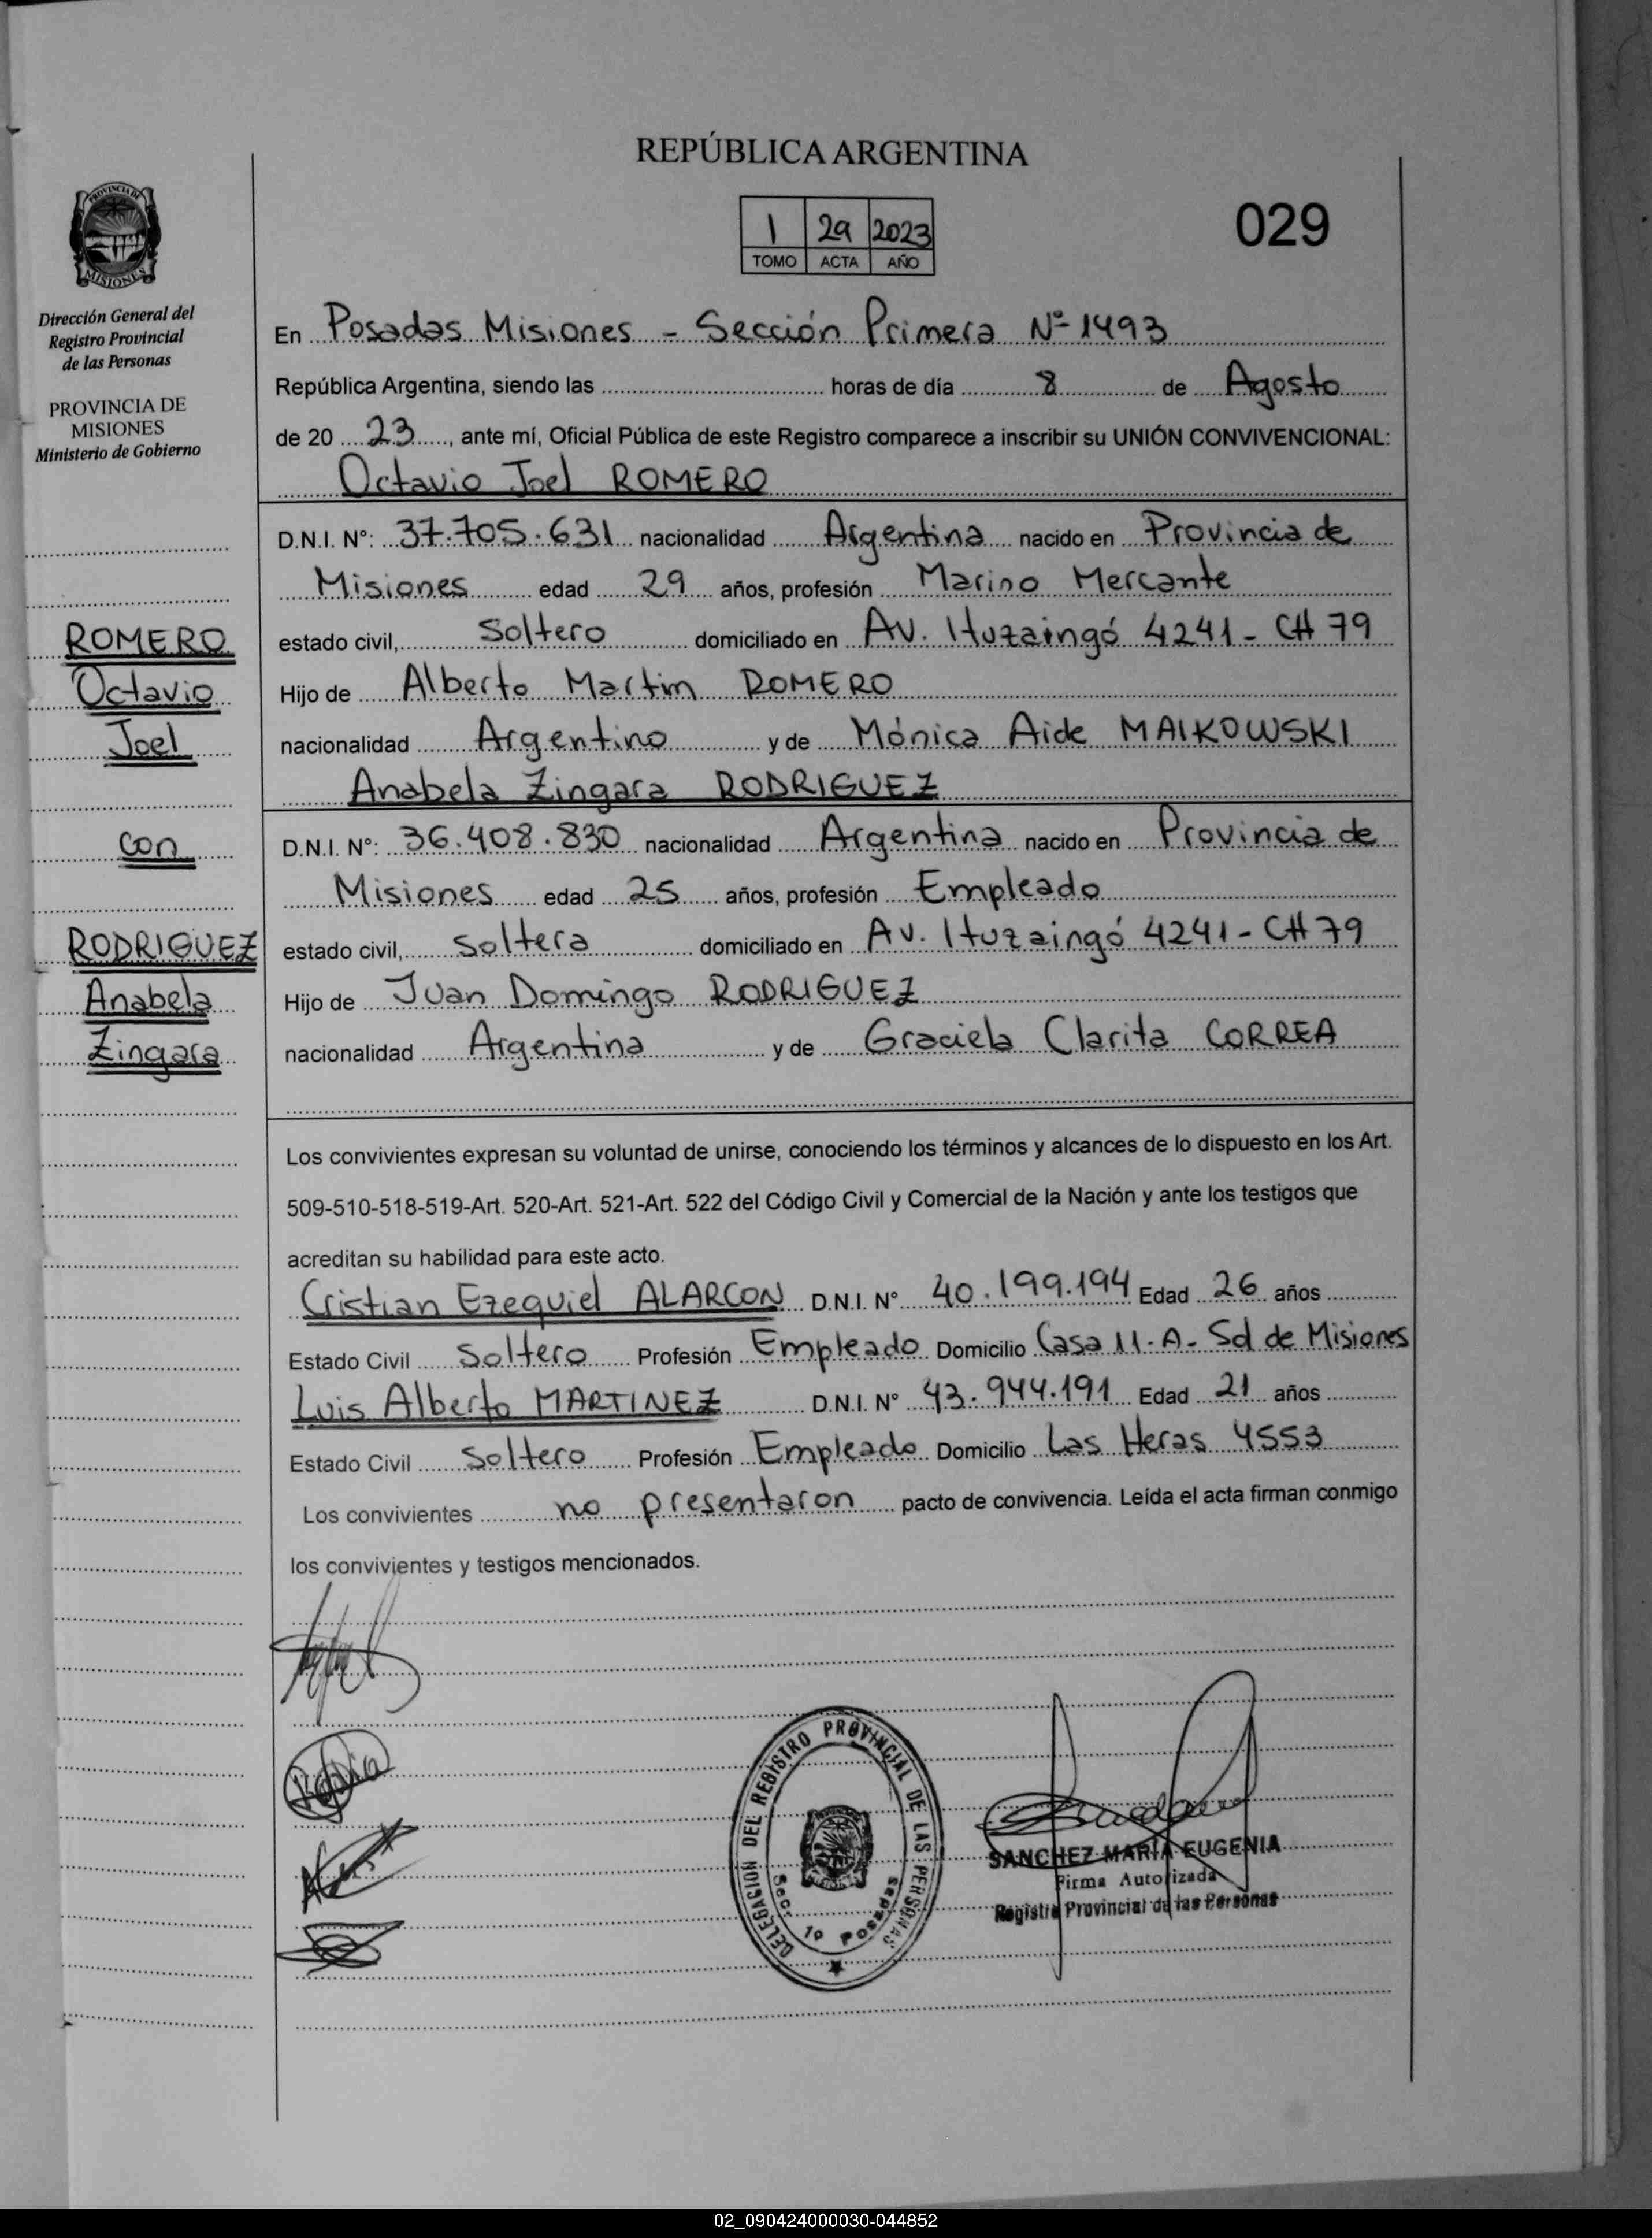 REPÚBLICA ARGENTINA
1 29 2023
TOMO ACTA AÑO
029
PROVINCIA DE
MISIONES
Dirección General del
Registro Provincial
de las Personas
PROVINCIA DE
MISIONES
Ministerio de Gobierno
En Posadas Misiones - Sección Primera Nº 1493
República Argentina, siendo las ........ horas de día 8 de Agosto
de 20 23, ante mí, Oficial Pública de este Registro comparece a inscribir su UNIÓN CONVIVENCIONAL:
Octavio Joel ROMERO
D.N.I. Nº: 37.705.631 nacionalidad Argentina nacido en Provincia de
Misiones edad 29 años, profesión Marino Mercante
estado civil, Soltero domiciliado en Av. Ituzaingó 4241 - CH 79
Hijo de Alberto Martim ROMERO
nacionalidad Argentino y de Mónica Aide MAIKOWSKI
Anabela Zingara RODRIGUEZ
D.N.I. Nº: 36.408.830 nacionalidad Argentina nacido en Provincia de
Misiones edad 25 años, profesión Empleado
estado civil, soltera domiciliado en Av. Ituzaingó 4241 - CH 79
Hijo de Juan Domingo RODRIGUEZ
nacionalidad Argentina y de Graciela Clarita CORREA
ROMERO
Octavio
Joel
con
RODRIGUEZ
Anabela
Zingara
Los convivientes expresan su voluntad de unirse, conociendo los términos y alcances de lo dispuesto en los Art.
509-510-518-519-Art. 520-Art. 521-Art. 522 del Código Civil y Comercial de la Nación y ante los testigos que
acreditan su habilidad para este acto.
Cristian Ezequiel ALARCON D.N.I. Nº 40.199.194 Edad 26 años
Estado Civil Soltero Profesión Empleado Domicilio Casa 11-A- Sd de Misiones
Luis Alberto MARTINEZ D.N.I. Nº 43.944.191 Edad 21 años
Estado Civil Soltero Profesión Empleado Domicilio Las Heras 4553
Los convivientes no presentaron pacto de convivencia. Leída el acta firman conmigo
los convivientes y testigos mencionados.
DELEGACION DEL REGISTRO PROVINCIAL DE LAS PERSONAS
Secc. 1º Posadas
SANCHEZ MARÍA EUGENIA
Firma Autorizada
Registro Provincial de las Personas
02_090424000030-044852